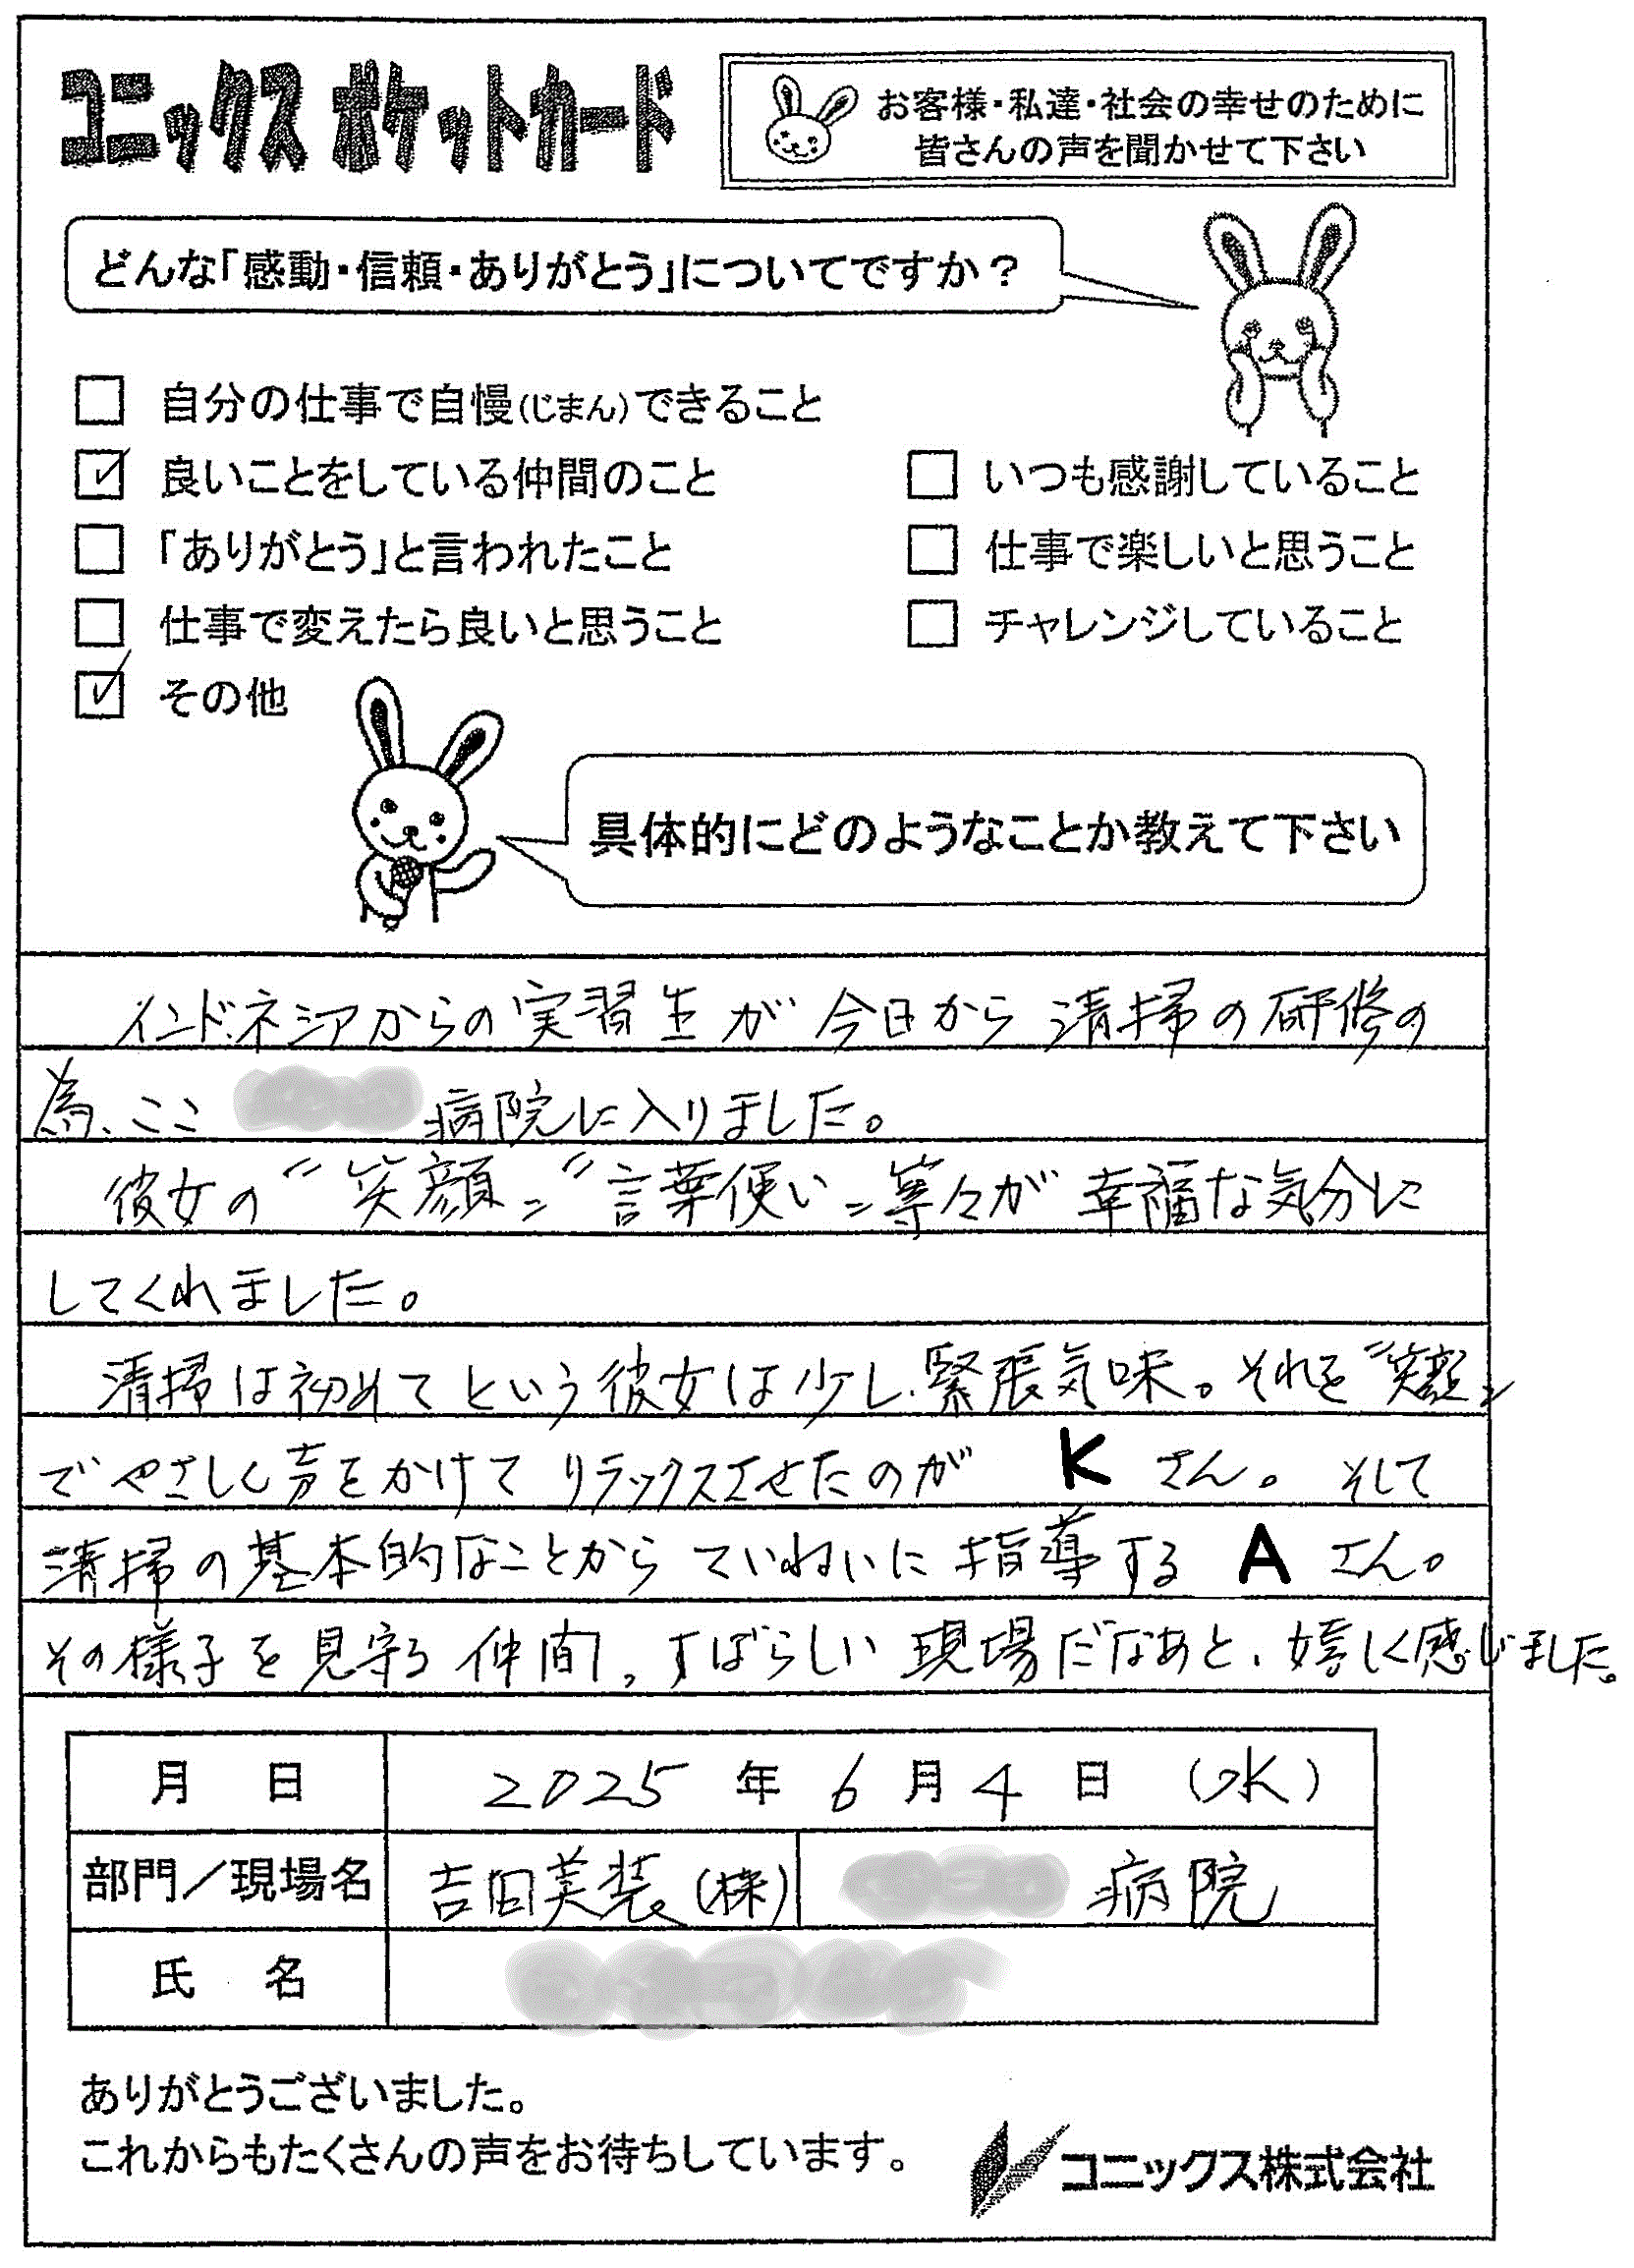 コニックス ポケットカード
お客様・私達・社会の幸せのために
皆さんの声を聞かせて下さい
どんな「感動・信頼・ありがとう」についてですか？
自分の仕事で自慢(じまん)できること
良いことをしている仲間のこと
いつも感謝していること
「ありがとう」と言われたこと
仕事で楽しいと思うこと
仕事で変えたら良いと思うこと
チャレンジしていること
その他
具体的にどのようなことか教えて下さい
インドネシアからの実習生が今日から清掃の研修の
為、ここ 病院に入りました。
彼女の〝笑顔〟〝言葉使い〟等々が幸福な気分に
してくれました。
清掃は初めてという彼女は少し緊張気味。それを〝笑顔〟
でやさしく声をかけてリラックスさせたのが K さん。そして
清掃の基本的なことからていねいに指導する A さん。
その様子を見守る仲間。すばらしい現場だなあと、嬉しく感じました。
月 日 2025 年 6 月 4 日 (水)
部門／現場名 吉田美装(株) 病院
氏 名
ありがとうございました。
これからもたくさんの声をお待ちしています。
コニックス株式会社